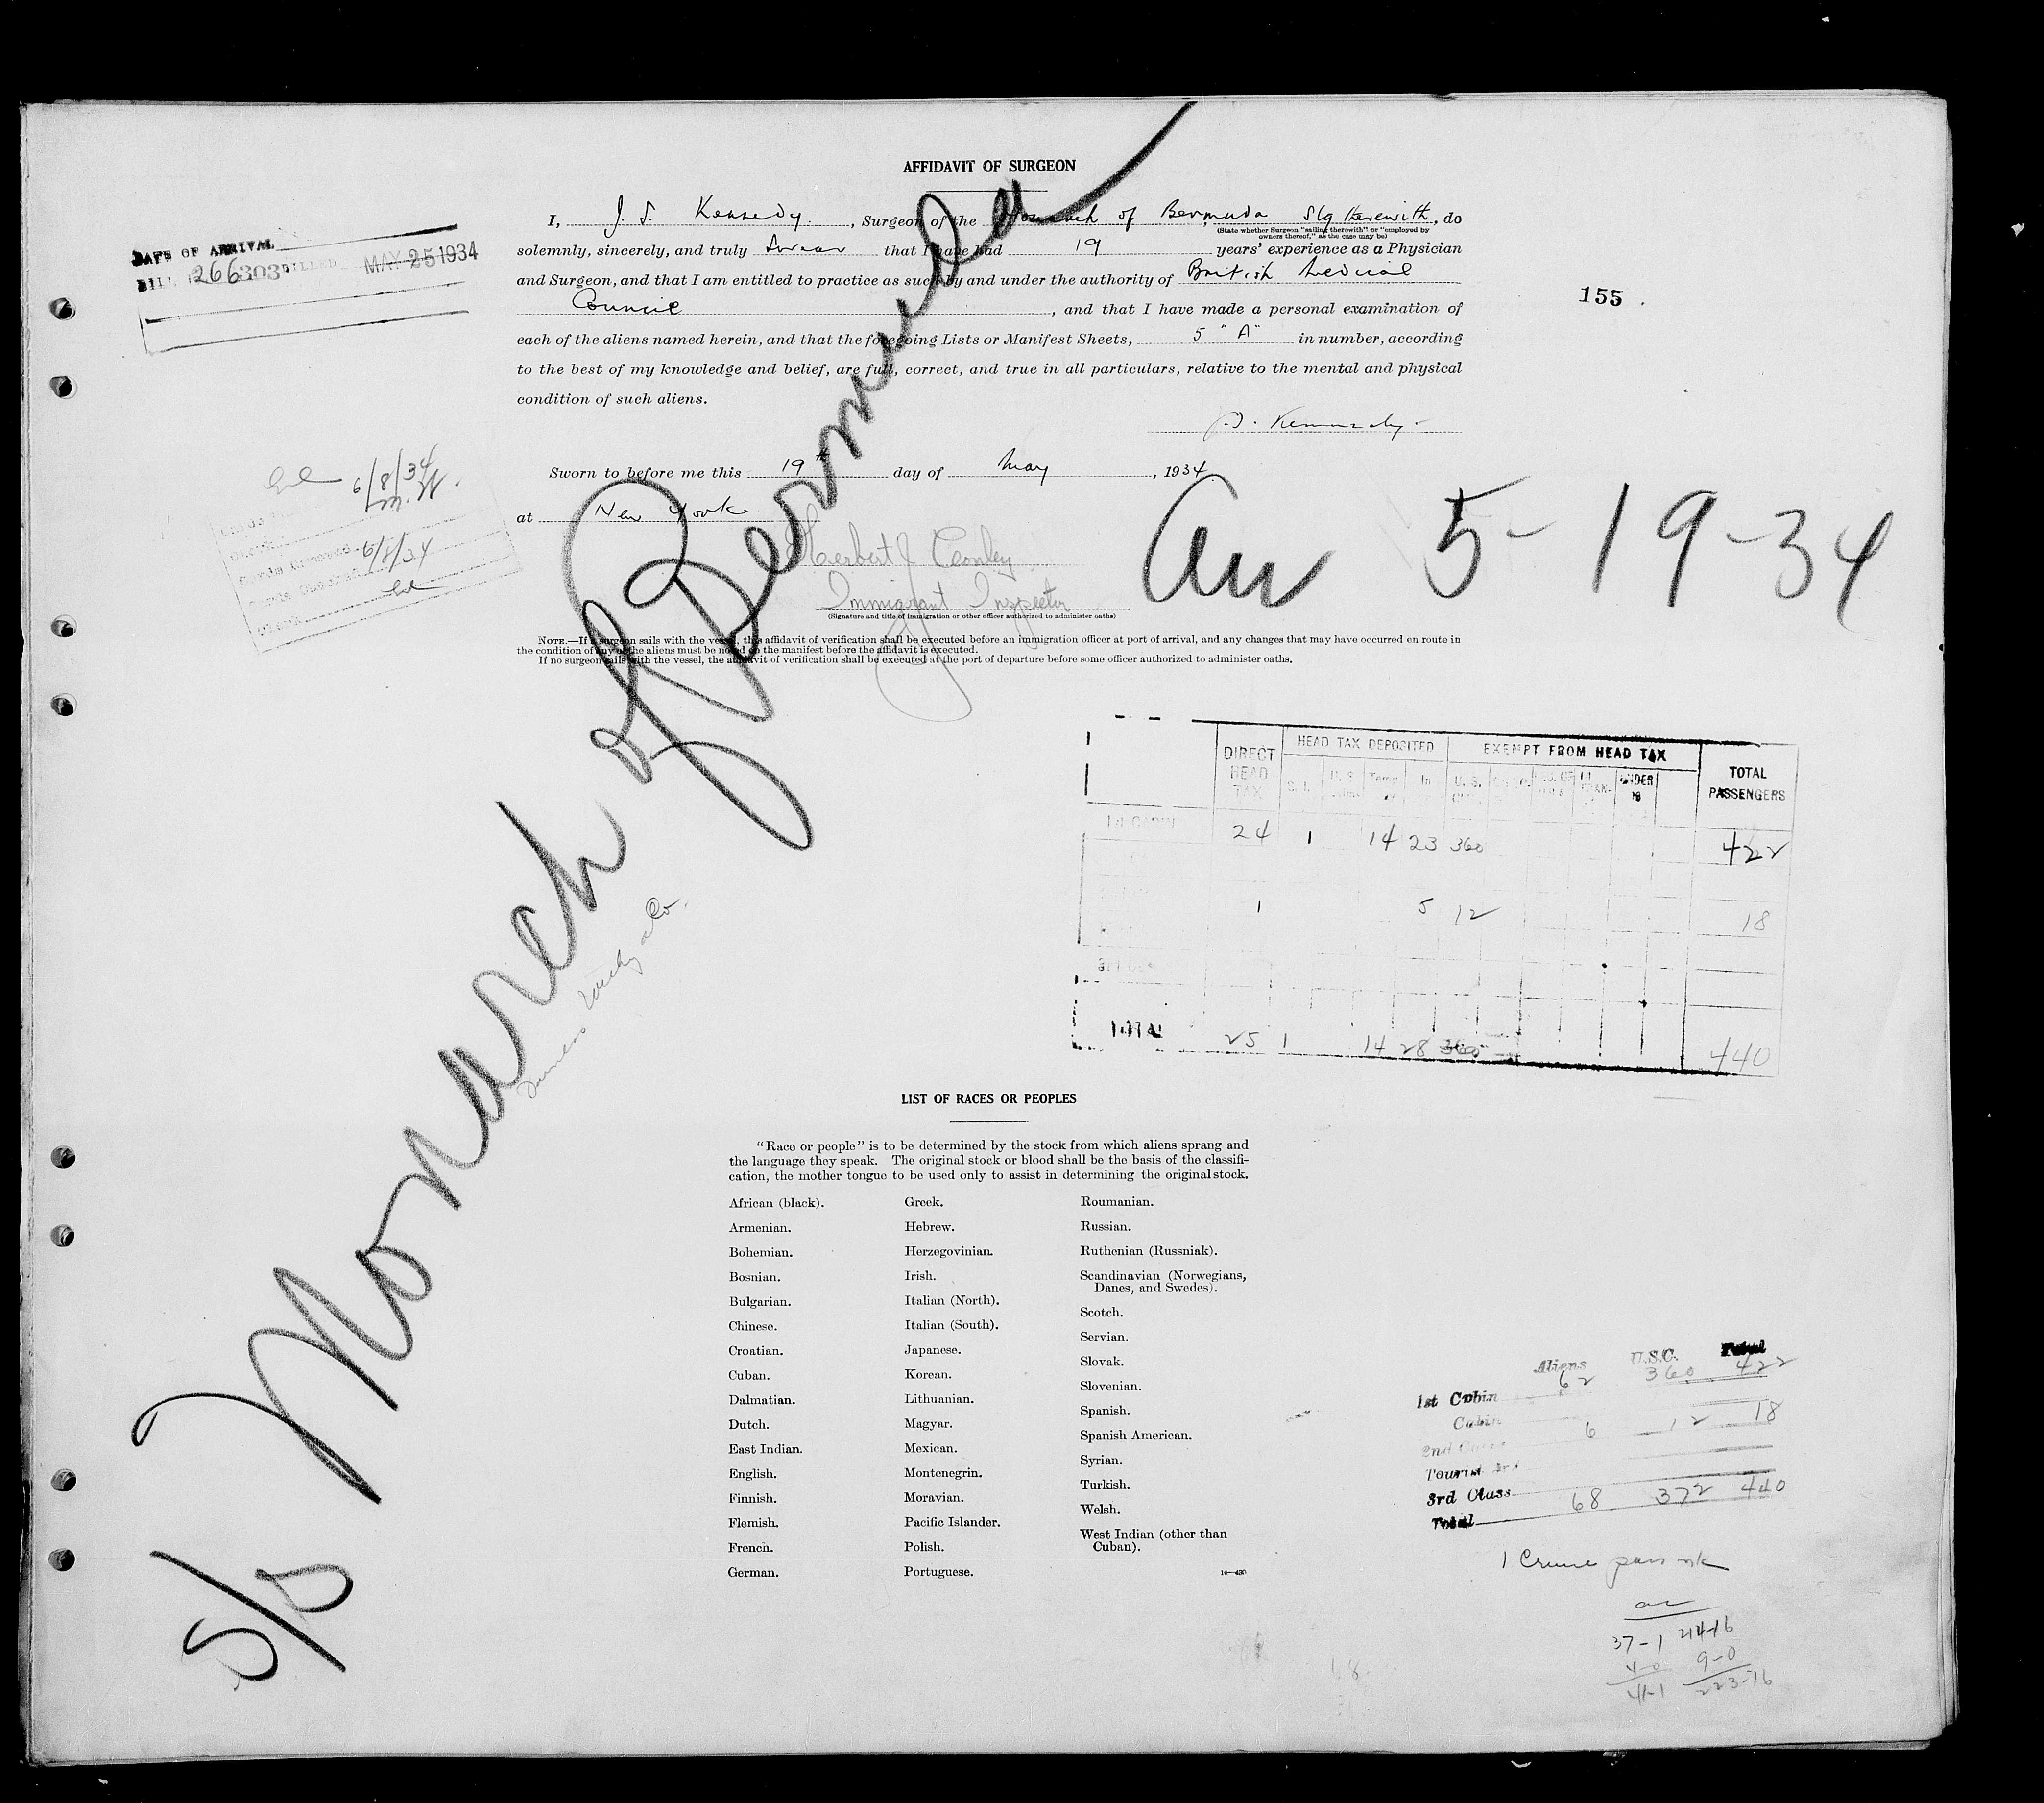 AFFIDAVIT OF SURGEON
I, J. S. Kennedy, Surgeon of the Monarch of Bermuda Slg Herewith, do
(State whether Surgeon "sailing therewith" or "employed by
owners thereof," as the case may be)
solemnly, sincerely, and truly swear that I have had 19 years' experience as a Physician
and Surgeon, and that I am entitled to practice as such by and under the authority of British Medical
Council, and that I have made a personal examination of
each of the aliens named herein, and that the foregoing Lists or Manifest Sheets, 5 "A" in number, according
to the best of my knowledge and belief, are full, correct, and true in all particulars, relative to the mental and physical
condition of such aliens.
Kennedy
Sworn to before me this 19th day of May, 1934
at New York
Herbert
Immigrant Inspector
(Signature and title of immigration or other officer authorized to administer oaths)
NOTE.—If a surgeon sails with the vessel, this affidavit of verification shall be executed before an immigration officer at port of arrival, and any changes that may have occurred en route in
the condition of any of the aliens must be noted on the manifest before the affidavit is executed.
If no surgeon sails with the vessel, the affidavit of verification shall be executed at the port of departure before some officer authorized to administer oaths.
DATE OF ARRIVAL
BILL 266303 BILLED MAY 25 1934
155
6/8/34
6/8/34
S/S Monarch of Bermuda
Arr 5-19-34
Furness Withy & Co.
DIRECT HEAD TAX
HEAD TAX DEPOSITED
EXEMPT FROM HEAD TAX
TOTAL PASSENGERS
UNDER 16
1st CABIN 24 1 14 23 360 422
1 5 12 18
TOTAL 25 1 14 28 440
LIST OF RACES OR PEOPLES
"Race or people" is to be determined by the stock from which aliens sprang and
the language they speak. The original stock or blood shall be the basis of the classifi-
cation, the mother tongue to be used only to assist in determining the original stock.
African (black).
Armenian.
Bohemian.
Bosnian.
Bulgarian.
Chinese.
Croatian.
Cuban.
Dalmatian.
Dutch.
East Indian.
English.
Finnish.
Flemish.
French.
German.
Greek.
Hebrew.
Herzegovinian.
Irish.
Italian (North).
Italian (South).
Japanese.
Korean.
Lithuanian.
Magyar.
Mexican.
Montenegrin.
Moravian.
Pacific Islander.
Polish.
Portuguese.
Roumanian.
Russian.
Ruthenian (Russniak).
Scandinavian (Norwegians,
Danes, and Swedes).
Scotch.
Servian.
Slovak.
Slovenian.
Spanish.
Spanish American.
Syrian.
Turkish.
Welsh.
West Indian (other than
Cuban).
14—430
Aliens U.S.C. Total
1st Cabin 62 360 422
Cabin 6 12 18
2nd
Tourist 3rd
3rd Class 68 372 440
Total
1 Cruise
37-1
9-0
41-1 223-16